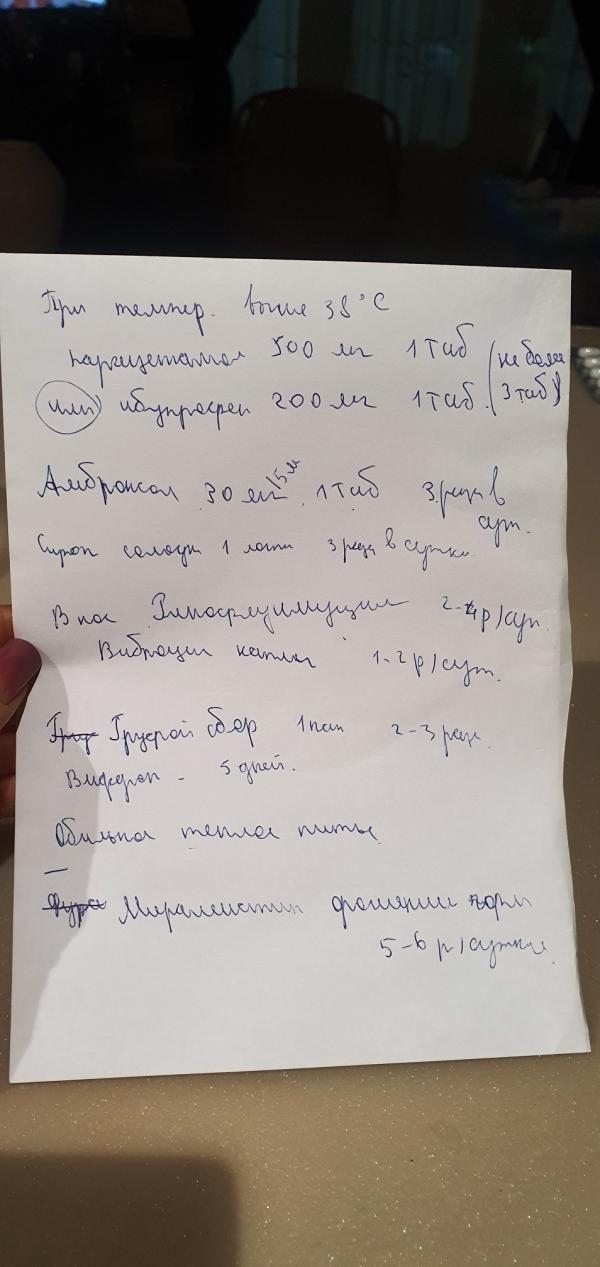 При темпер. выше 38°C
парацетамол 500 мг 1 таб (не более
или ибупрофен 200 мг 1 таб. 3 таб)
Амброксол 30 мг 1 таб 3 раза в
сут.
Сироп солодки 1 ложк 3 раза в сутки.
В нос 2-4 р/сут.
Виброцил капли 1-2 р/сут.
Грудной сбор 1 пак 2-3 раза.
Виферон - 5 дней.
Обильное теплое питье
Мирамистин орошении горл
5-6 р/сутки